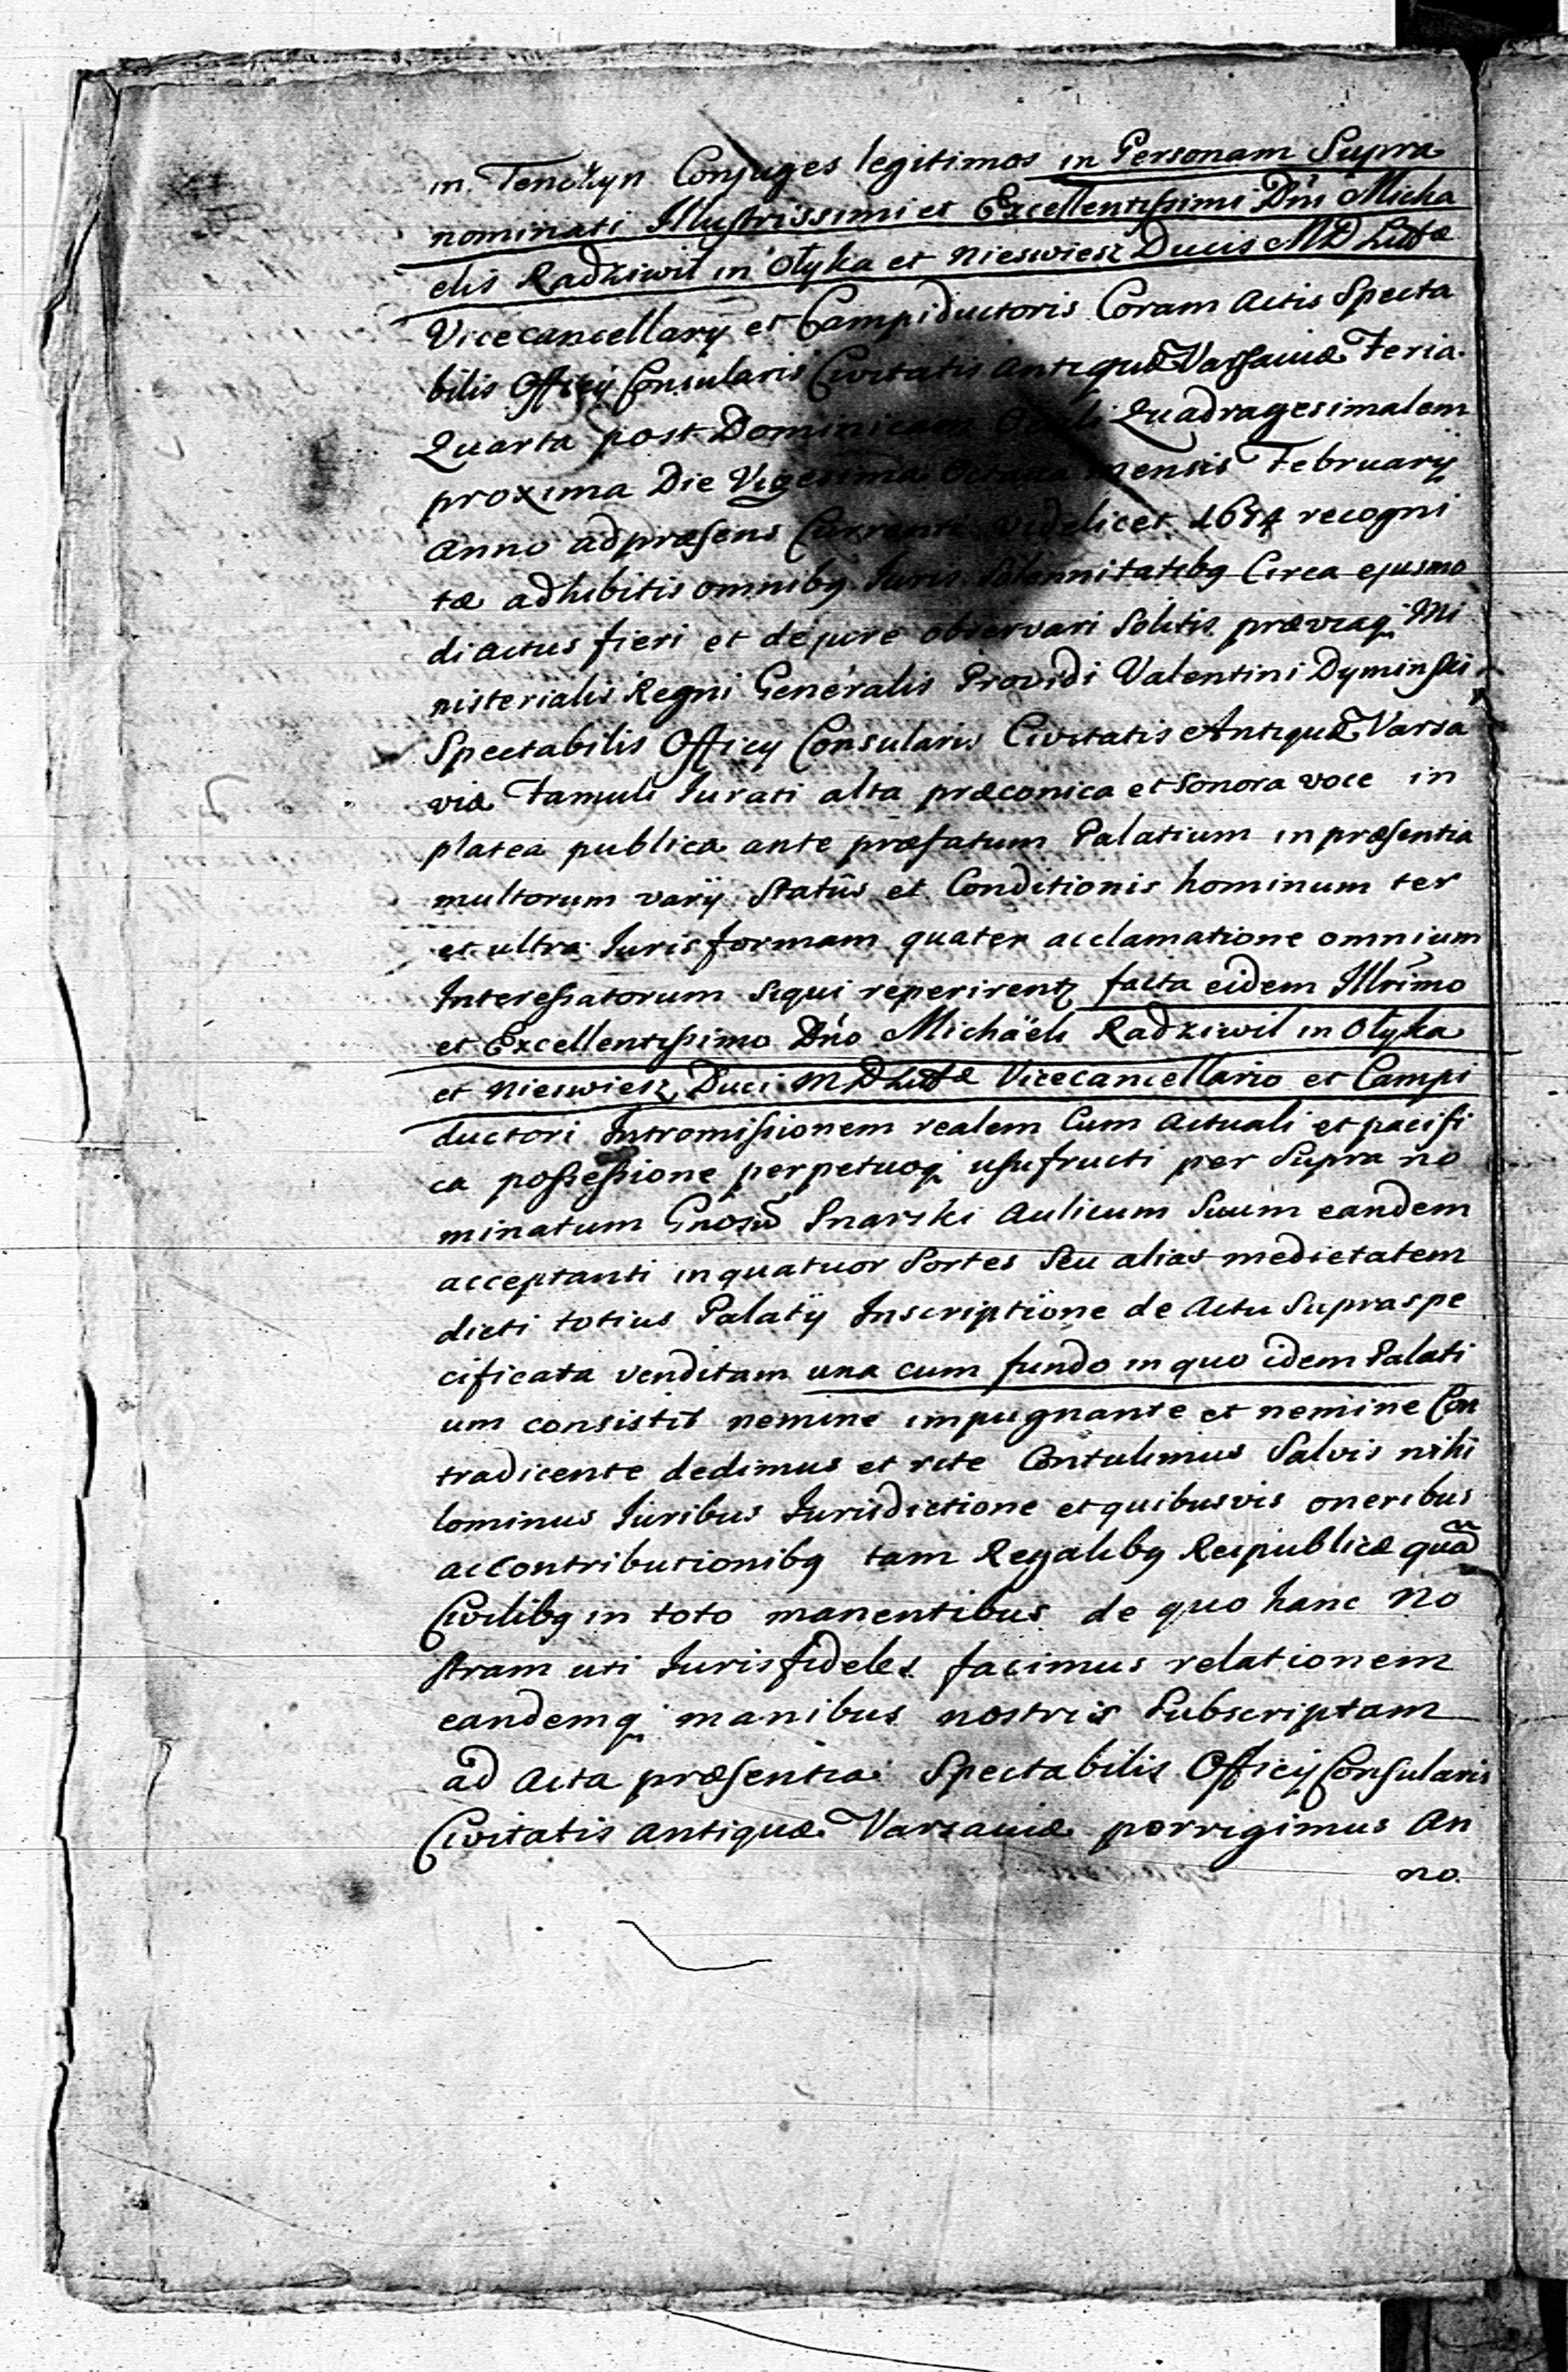 in Tenczyn Conjuges legitimos in Personam Supra
nominati Illustrissimi et Excellentissimi Dni Micha
elis Radziwil in Olyka et Nieswiesz Ducis MD Littæ
Vicecancellarÿ et Campiductoris Coram Actis Specta
bilis Officÿ Consularis Civitatis Antiquæ Varsaviæ Feria
Quarta post Dominicam Oculi Quadragesimalem
proxima Die Vigesima Octava mensis Februarÿ
Anno ad præsens Currenti videlicet 1684 recogni
tæ adhibitis omnibq Iuris Solennitatibq Circa ejusmo
di Actus fieri et de jure observari Solitis præviaq Mi
nisterialis Regni Generalis Providi Valentini Dyminski
Spectabilis Officÿ Consularis Civitatis Antiquæ Varsa
viæ Famuli Iurati alta præconica et sonora voce in
platea publica ante præfatum Palatium in præsentia
multorum varÿ Statûs et Conditionis hominum ter
et ultra Iuris formam quater acclamatione omnium
Interessatorum siqui reperirentq facta eidem Illrimo
et Excellentissimo Dno Michäeli Radziwil in Olyka
et Nieswiesz Duci MD Littæ Vicecancellario et Campi
ductori Intromissionem realem Cum Actuali et pacifi
ca possessione perpetuoq usufructi per Supra no
minatum Gnosũ Snarski Aulicum Suum eandem
acceptanti in quatuor Sortes Seu alias medietatem
dicti totius Palatÿ Inscriptione de Actu Supraspe
cificata venditam una cum fundo in quo idem Palati
um consistit nemine impugnante et nemine Con
tradicente dedimus et rite Contulimus Salvis nihi
lominus Iuribus Iurisdictione et quibusvis oneribus
ac Contributionibq tam Regalibq Reipublicæ quã
Civilibq in toto manentibus de quo hanc No
stram uti Iuris fideles facimus relationem
eandemq manibus nostris Subscriptam
ad Acta præsentia Spectabilis Officÿ Consularis
Civitatis Antiquæ Varsaviæ porrigimus An
no